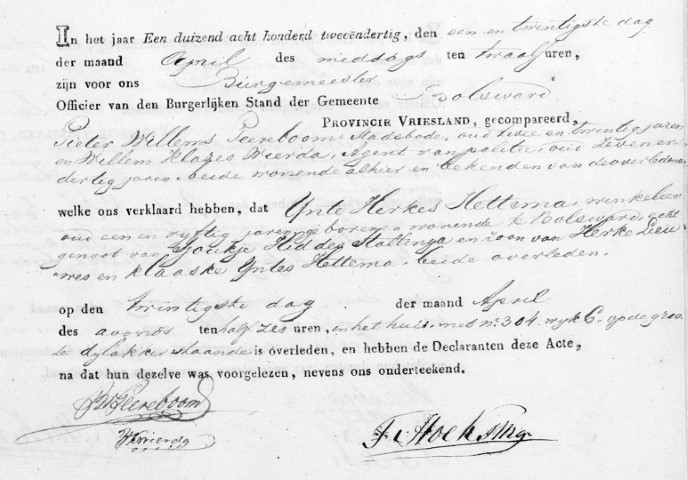 In het jaar Een duizend acht honderd tweeëndertig, den een en twintigste dag
der maand April des middags ten twaalf uren,
zijn voor ons Burgemeester
Officier van den Burgerlijken Stand der Gemeente Bolsward
Provincie Vriesland, gecompareerd,
Pieter Willems Peereboom, Stadsbode, oud twee en twintig jaren
en Willem Klazes Wierda, Agent van politie, oud zevenen
dertig jaren, beide wonende alhier en bekenden van de overledene
welke ons verklaard hebben, dat Ynte Herkes Hettema, winkelier
oud een en vyftig jaren, geboren en wonende te Bolsward, echt
genoot van Sjoukje Hiddes Staltinga en zoon van Herke Lieu
wes en Klaaske Yntes Hettema, beide overleden.
op den twintigste dag der maand April
des avonds ten half zes uren, in het huis, met no. 304. wyk C. op de groo
te dylakker staande is overleden, en hebben de Declaranten deze Acte,
na dat hun dezelve was voorgelezen, nevens ons onderteekend.
PWPeereboom
WWierda